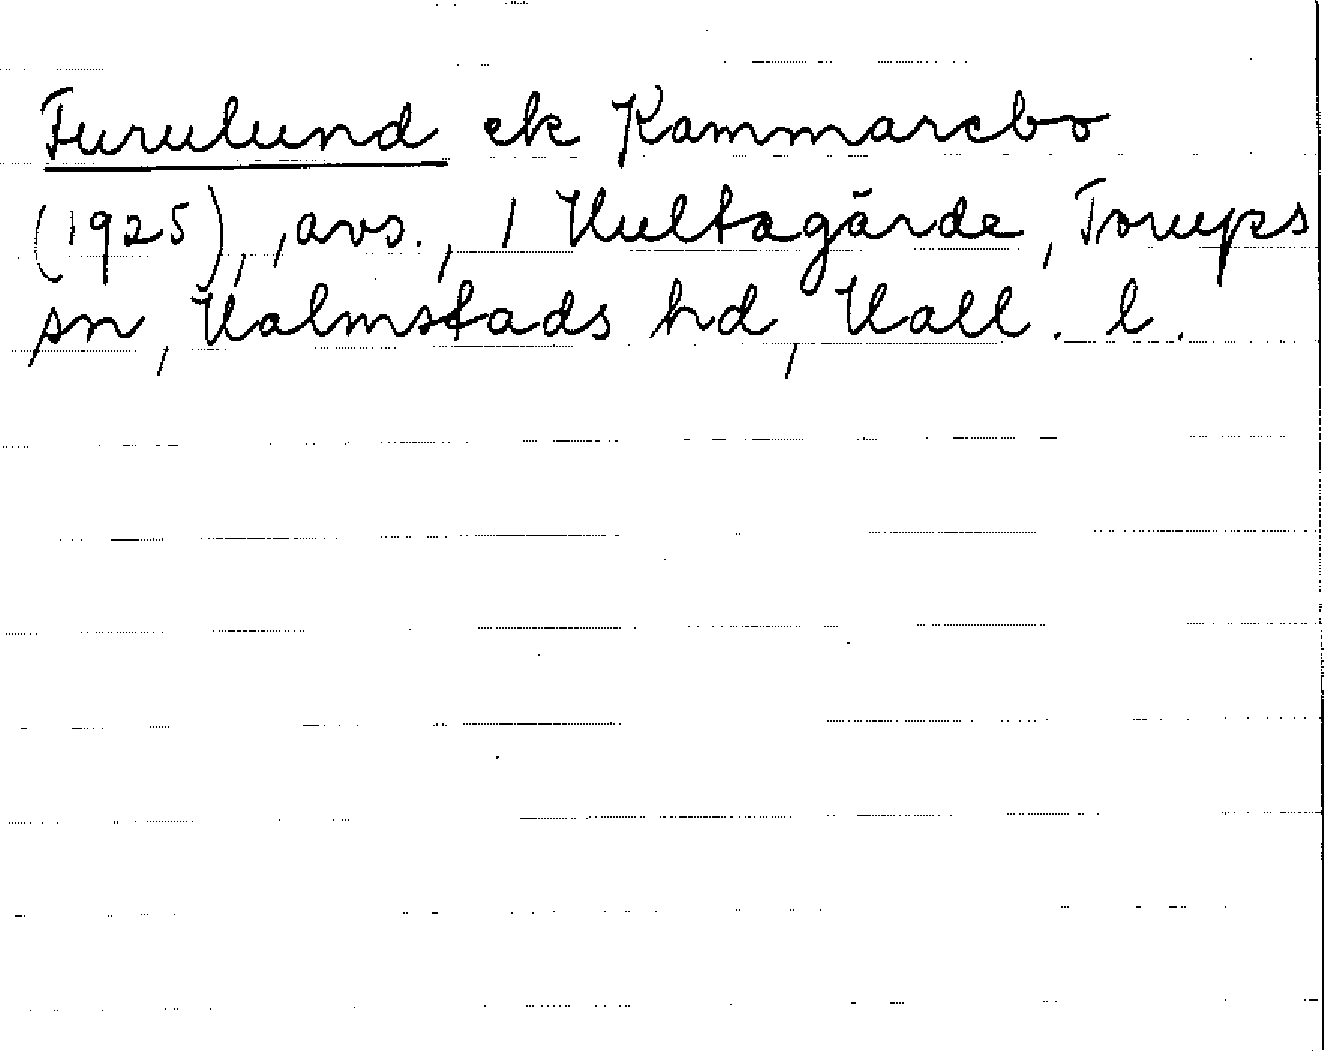 Furulund ek Kammarebo
(1925), avs., 1 Hultagärde, Torups
sn, Halmstads hd, Hall. l.